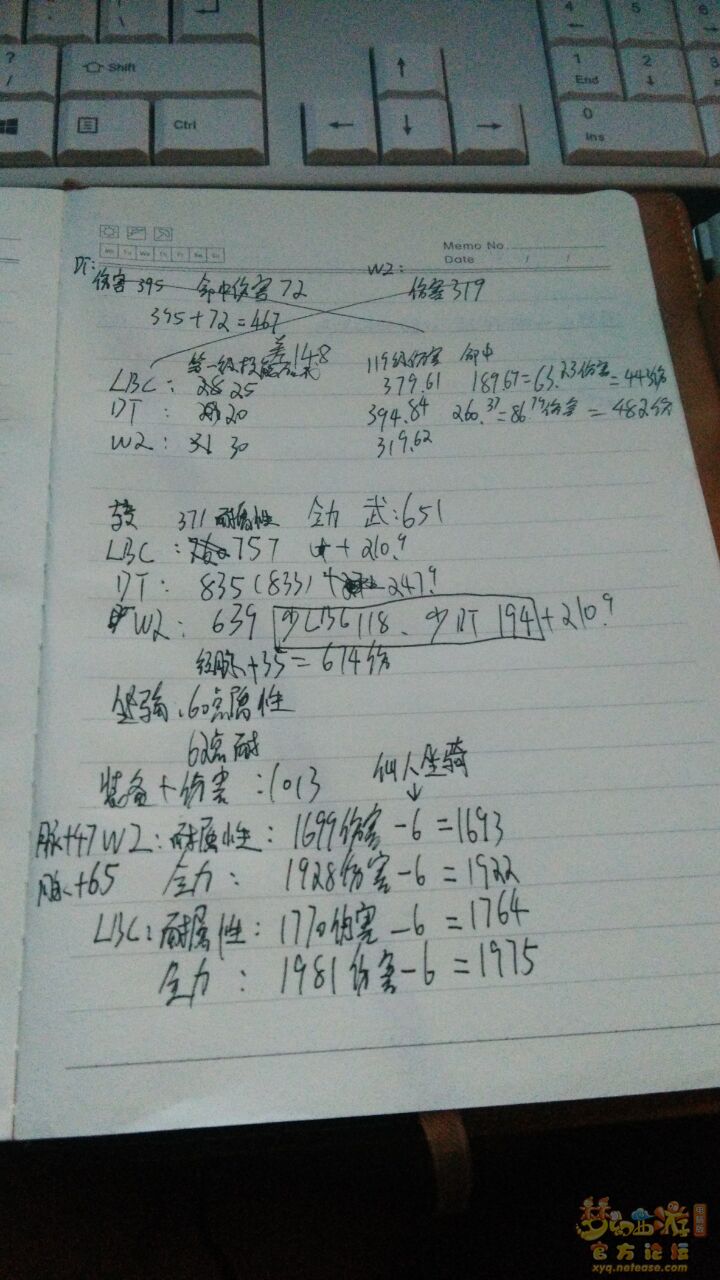 ? /
Shift
Ctrl
4
5
6
1 End
2
3
0 Ins
Mo Tu We Th Fr Sa Su
Memo No.
Date / /
DT:
W2:
伤害 395 命中伤害 72
伤害 319
395+72=467
差148
第一级技能 119级伤害 命中
LBC: 25 379.61 189.67=63.23伤害=443伤
DT: 20 394.84 260.37=86.79伤害=482伤
W2: 30 319.62
371 耐属性 全力 武:651
LBC: 757 +210.9
DT: 835(833) 247.9
W2: 639 少LBC118、少DT 194 +210.9
经脉+35=674伤
坐骑、60点属性
62点耐
装备+伤害:1013
仙人坐骑
脉+47 W2:耐属性:1699伤害-6=1693
脉+65 全力:1928伤害-6=1922
LBC:耐属性:1770伤害-6=1764
全力:1981伤害-6=1975
梦幻西游
电脑版
官方论坛
xyq.netease.com